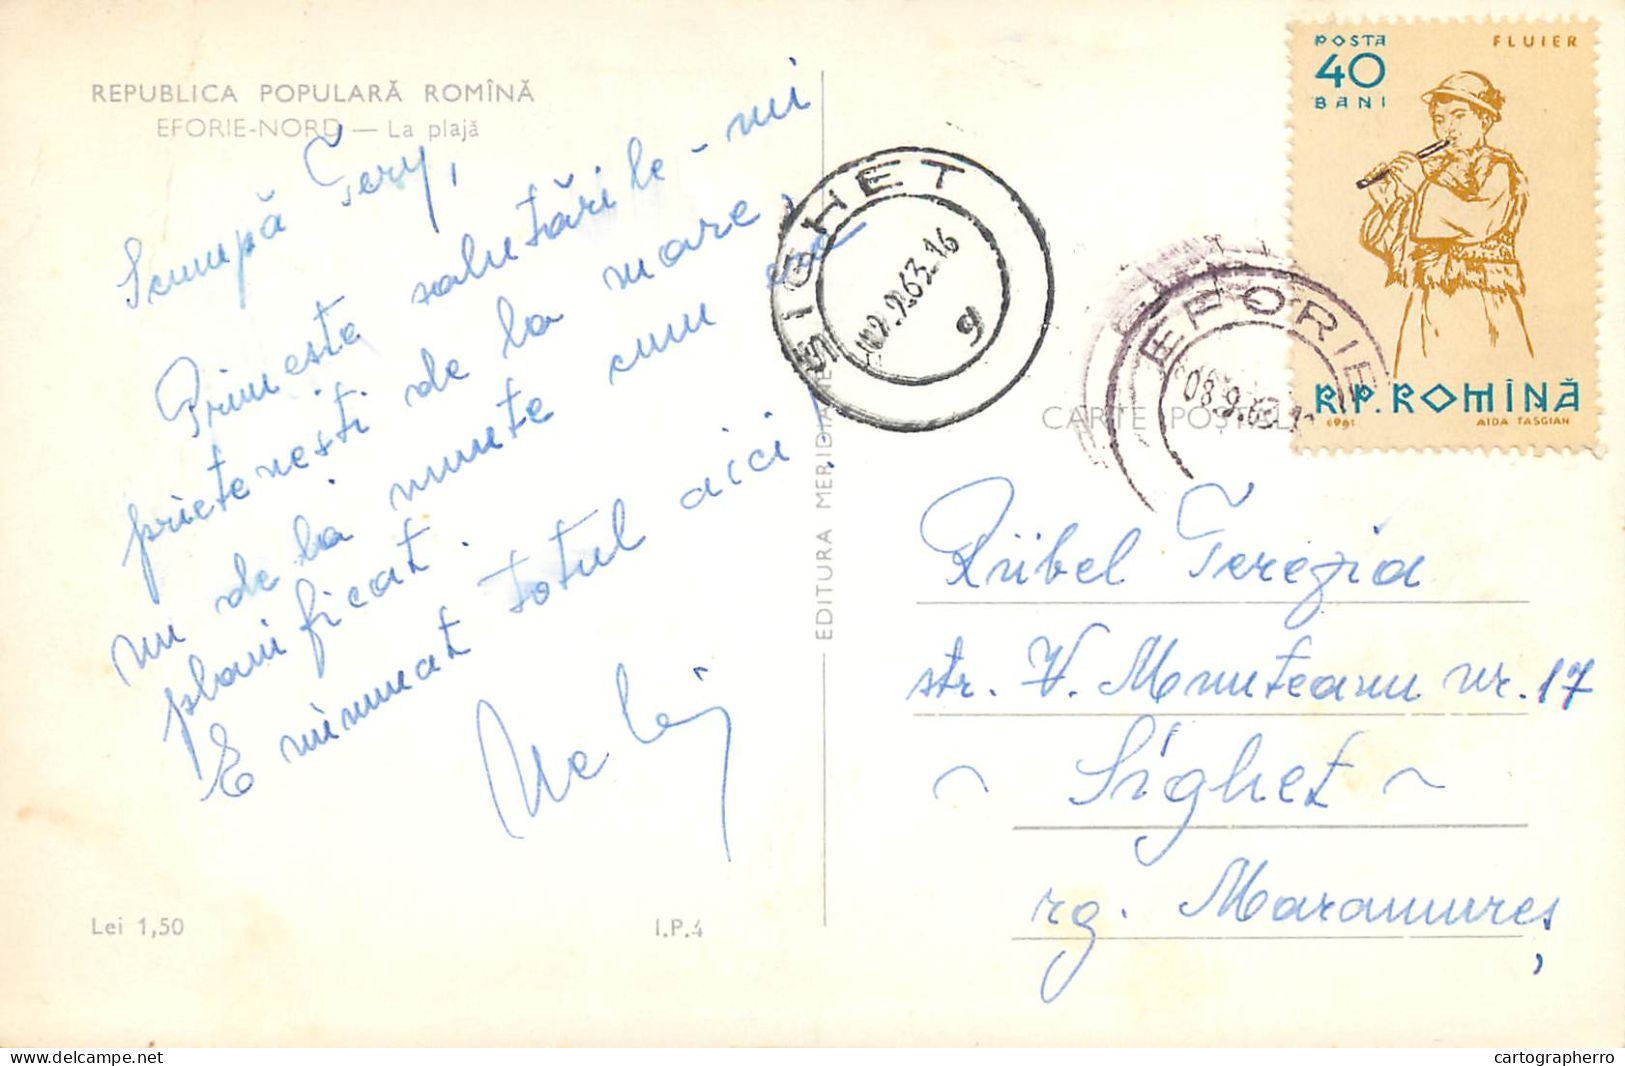 REPUBLICA POPULARĂ ROMÎNĂ
EFORIE-NORD — La plajă
Scumpă Tery,
Primește salutările-mi
prietenești de la mare,
nu de la munte cum era
planificat.
E minunat totul aici!
Lei 1,50
I.P.4
EDITURA MERIDIANE
SIGHET
9.63.16
g
EFORIE
08.9.63.1
POSTA
40
BANI
FLUIER
R.P.ROMÎNĂ
1961
AIDA TASGIAN
CARTE POSTALĂ
Rübel Terezia
str. V. Munteanu nr. 17
~ Sighet ~
rg. Maramureș,
cartographerro